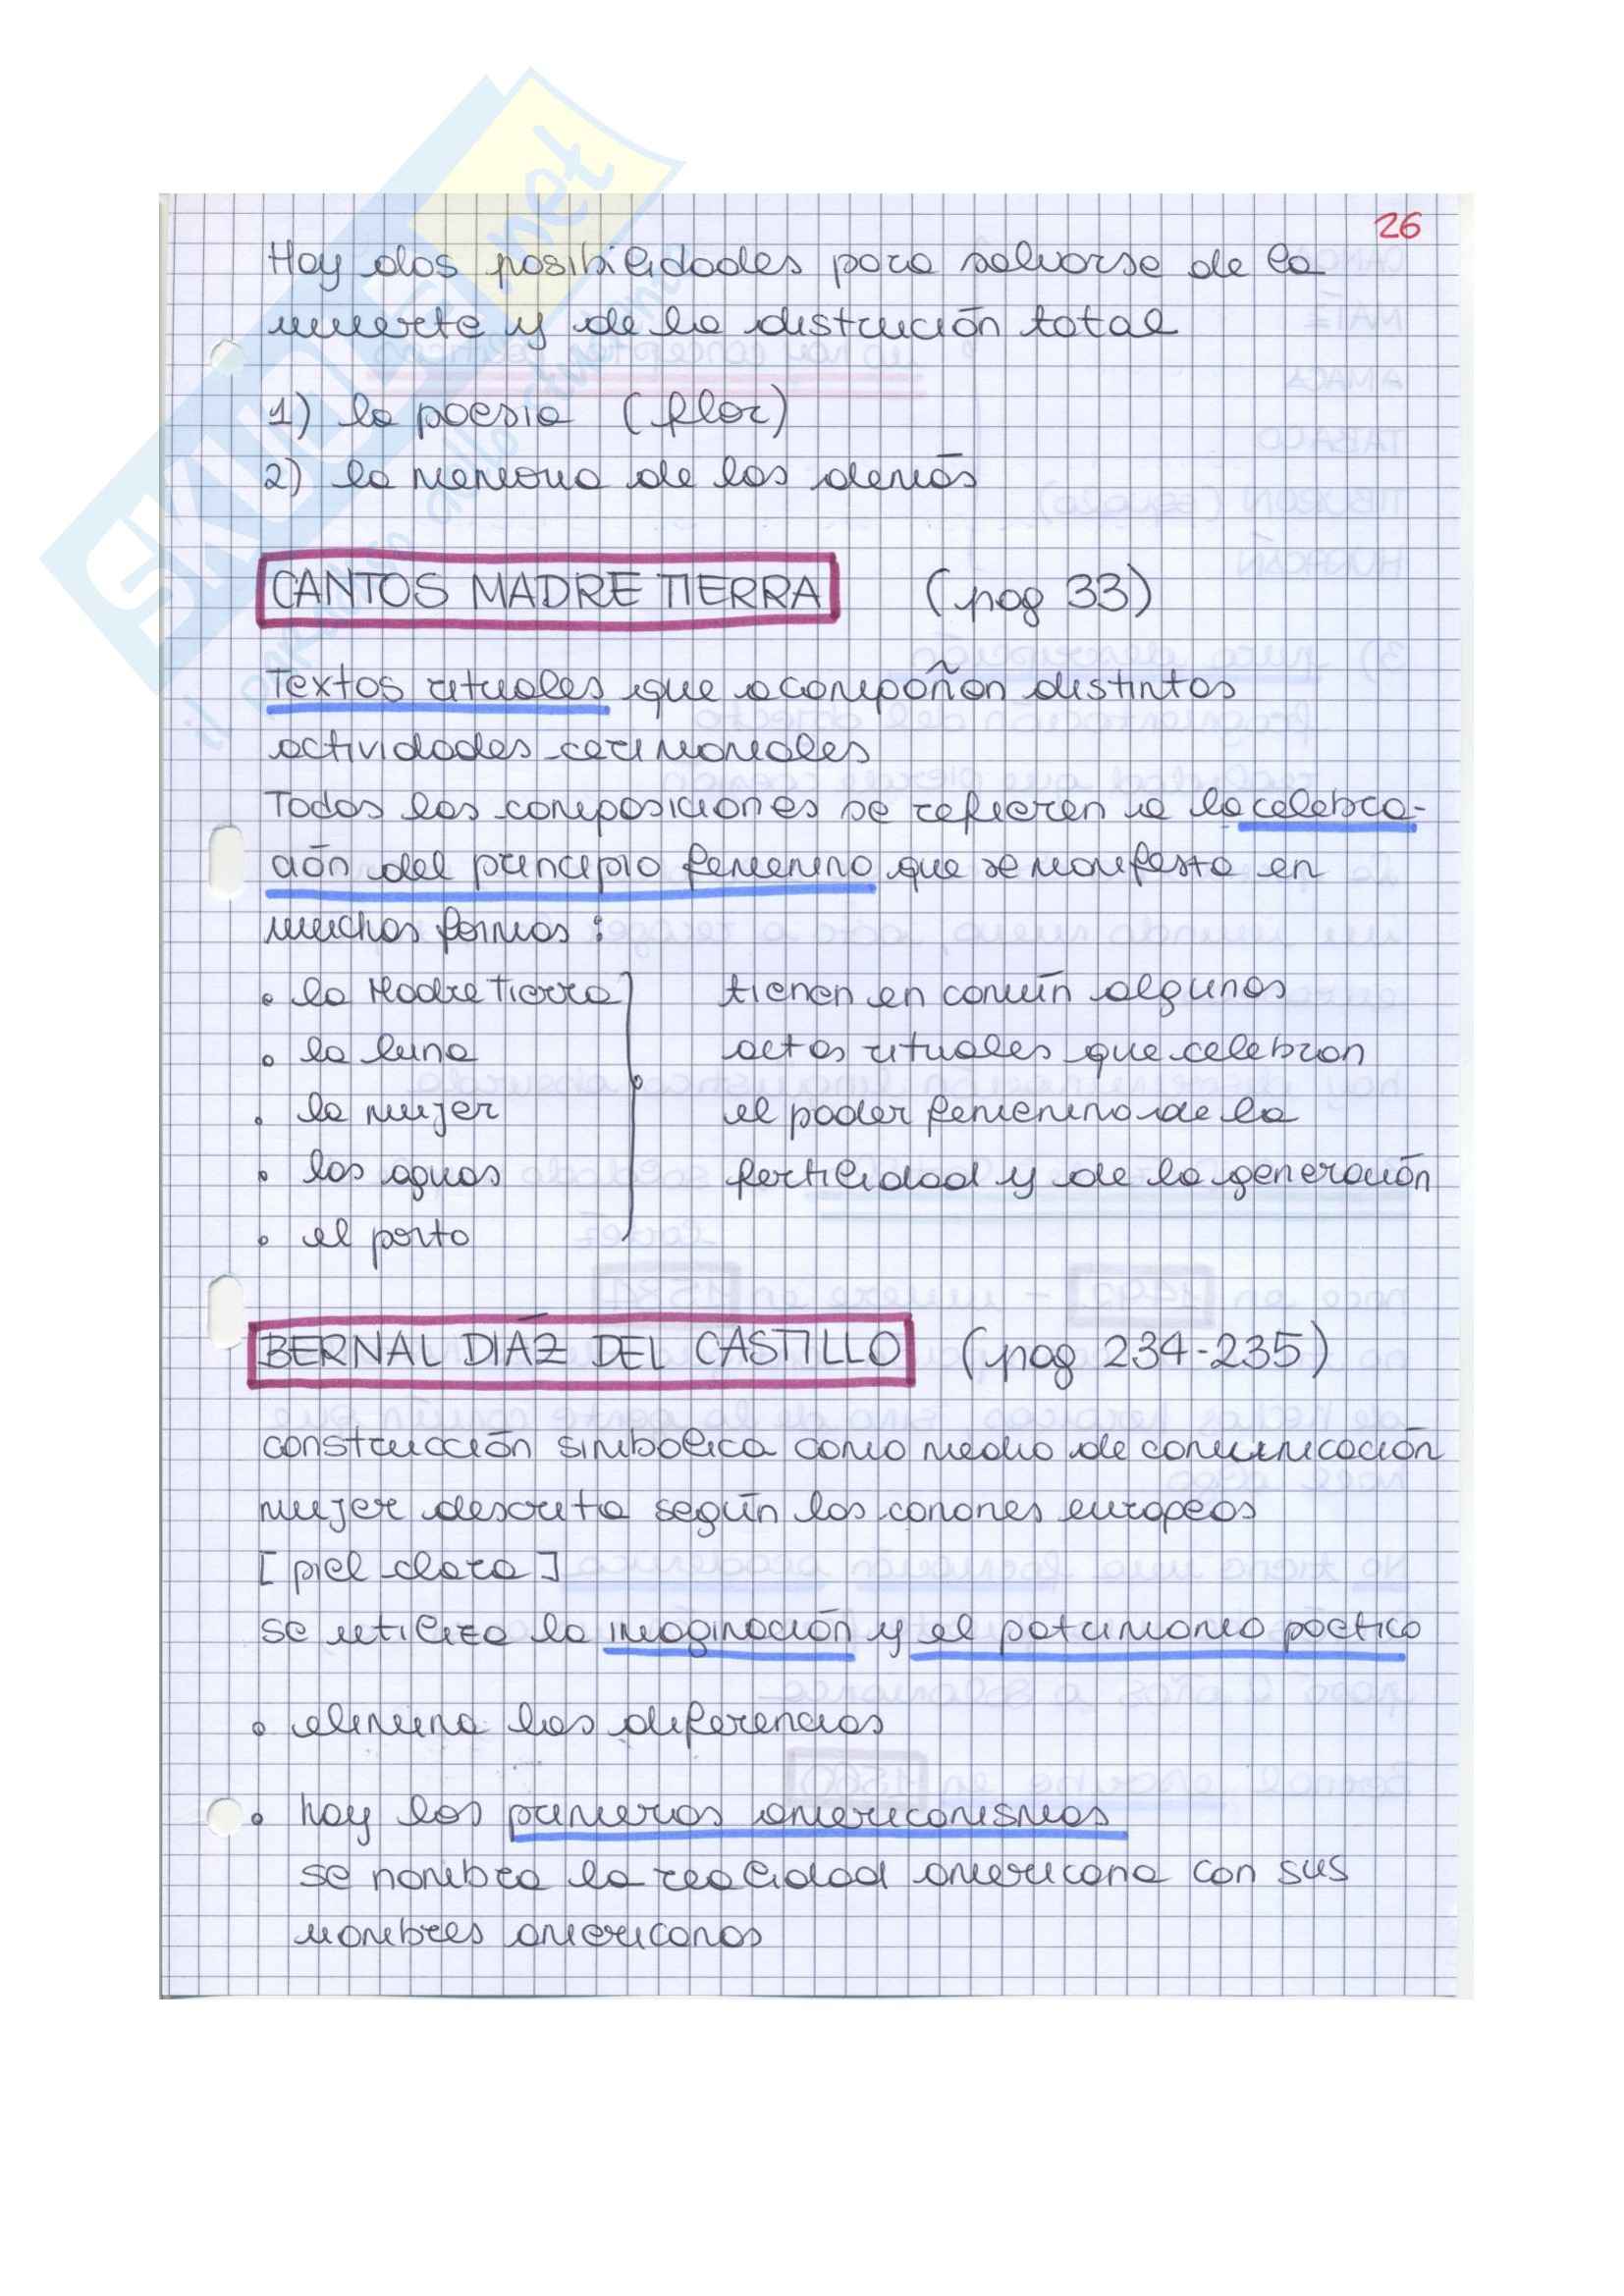 26
Hay dos posibilidades para salvarse de la
muerte y de la distrución total
1) la poesia (flor)
2) la memoria de los demás
CANTOS MADRE TIERRA (pag 33)
Textos rituales que acompañan distintas
actividades cerimoniales
Todas las composiciones se refieren a la celebra-
ción del principio femenino que se manifesta en
muchas formas:
• la Madre Tierra tienen en común algunos
• la luna actos rituales que celebran
• la mujer el poder femenino de la
• las aguas fertilidad y de la generación
• el parto
BERNAL DIÁZ DEL CASTILLO (pag 234-235)
construcción simbolica como medio de comunicación
mujer descrita según los canones europeos
[piel clara]
se utiliza la imaginación y el patrimonio poetico
• elimina las diferencias
• hay los primeros americanismos
se nombra la realidad americana con sus
nombres americanos
SKUOLA.net